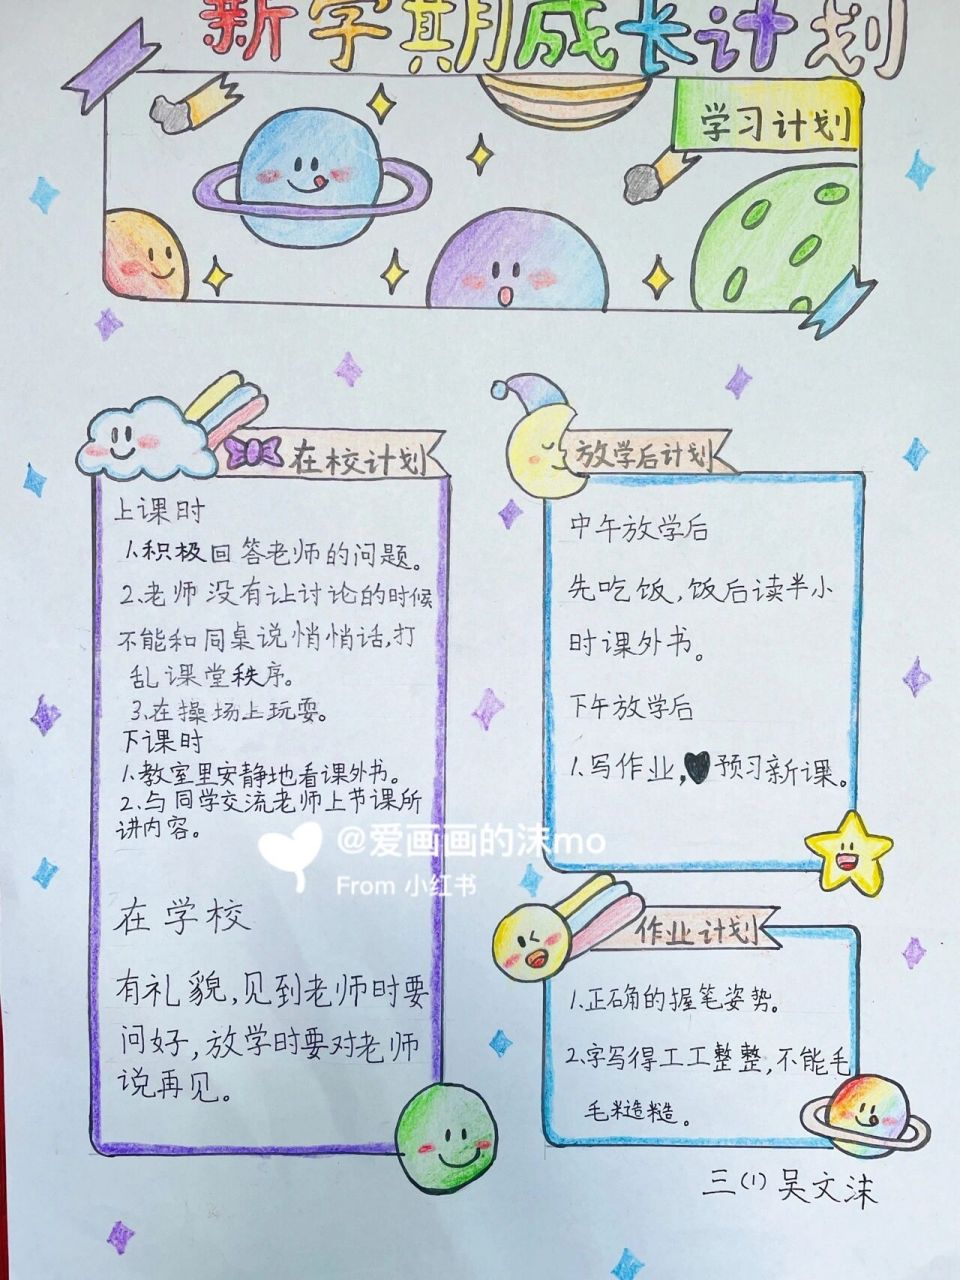 新学期成长计划
学习计划
在校计划
上课时
1.积极回答老师的问题。
2.老师没有让讨论的时候
不能和同桌说悄悄话,打
乱课堂秩序。
3.在操场上玩耍。
下课时
1.教室里安静地看课外书。
2.与同学交流老师上节课所
讲内容。
在学校
有礼貌,见到老师时要
问好,放学时要对老师
说再见。
放学后计划
中午放学后
先吃饭,饭后读半小
时课外书。
下午放学后
1.写作业,预习新课。
作业计划
1.正确的握笔姿势。
2.字写得工工整整,不能毛
毛糙糙。
三(1)吴文沫
@爱画画的沫mo
From 小红书